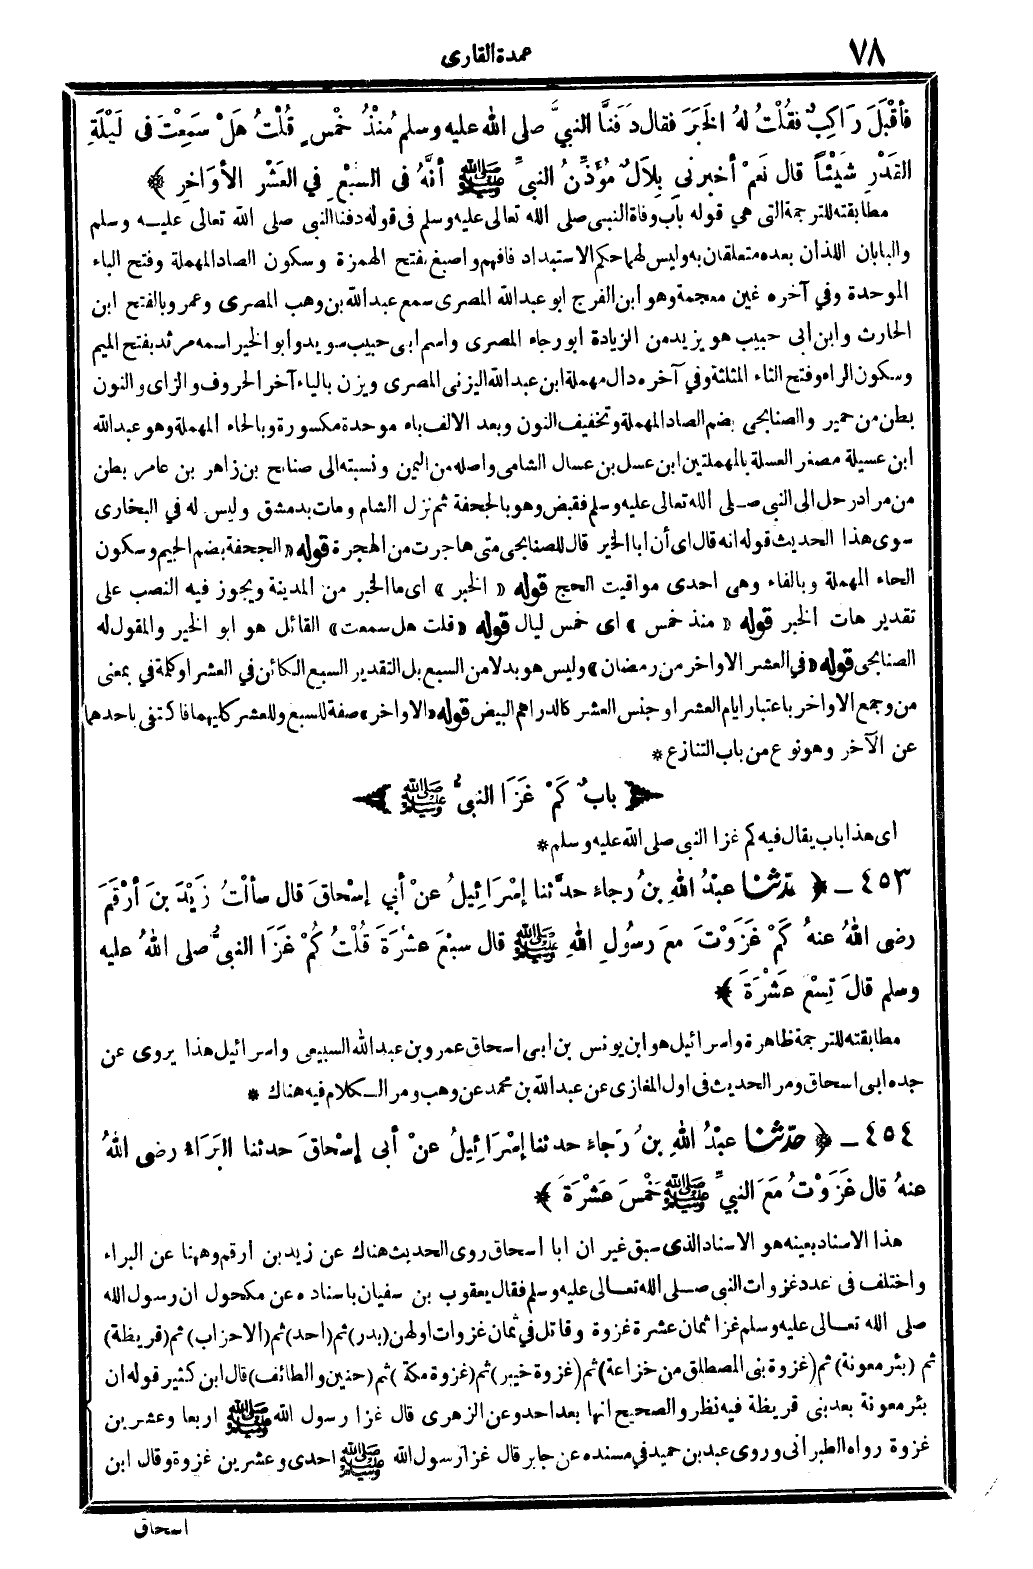 ٧٨
عمدة القارى
فأَقْبَلَ رَاكِبٌ فقُلْتُ لهُ الخَبَرَ فقال دَفَنَّا النبيَّ صلى الله عليه وسلم مُنْذُ خْمسٍ قُلْتُ هَلْ سَمِعْتَ فى لَيْلَةِ
القَدْرِ شَيْئاً قال نَعَمْ أخبرنى بِلاَلٌ مُؤَذِّنُ النبيِّ ﷺ أنَّهُ فى السبْعِ فِي العَشْرِ الأوَاخِرِ ﴾
مطابقته للترجمة التى هي قوله باب وفاة النبى صلى الله تعالى عليه وسلم فى قوله دفنا النبى صلى الله تعالى عليه وسلم
والبابان اللذان بعده متعلقان به وليس لهما حكم الاستبداد فافهم واصبغ بفتح الهمزة وسكون الصاد المهملة وفتح الباء
الموحدة وفي آخره غين معجمة وهو ابن الفرج ابو عبد الله المصرى سمع عبد الله بن وهب المصرى وعمرو بالفتح ابن
الحارث وابن ابى حبيب هو يزيد من الزيادة ابو رجاء المصرى واسم ابى حبيب سويد وابو الخير اسمه مرثد بفتح الميم
وسكون الراء وفتح الثاء المثلثة وفي آخره دال مهملة ابن عبد الله اليزنى المصرى ويزن بالياء آخر الحروف والزاى والنون
بطن من حمير والصنابحى بضم الصاد المهملة وتخفيف النون وبعد الالف باء موحدة مكسورة وبالحاء المهملة وهو عبد الله
ابن عسيلة مصغر العسلة بالمهملتين ابن عسل بن عسال الشامى واصله من اليمن ونسبته الى صنابح بن زاهر بن عامر بطن
من مراد رحل الى النبى صلى الله تعالى عليه وسلم فقبض وهو بالجحفة ثم نزل الشام ومات بدمشق وليس له في البخارى
سوى هذا الحديث قوله انه قال اى أن ابا الخير قال للصنابحى متى هاجرت من الهجرة قوله «الجحفة بضم الجيم وسكون
الحاء المهملة وبالفاء وهى احدى مواقيت الحج قوله « الخبر » اى ما الخبر من المدينة ويجوز فيه النصب على
تقدير هات الخبر قوله « منذ خمس » اى خمس ليال قوله «قلت هل سمعت» القائل هو ابو الخير والمقول له
الصنابحى قوله «في العشر الاواخر من رمضان» وليس هو بدلا من السبع بل التقدير السبع الكائن في العشر او كلمة في بمعنى
من وجمع الاواخر باعتبار ايام العشر او جنس العشر كالدراهم البيض قوله «الاواخر» صفة للسبع وللعشر كليهما فاكتفى باحدهما
عن الآخر وهو نوع من باب التنازع *
﴿ بابٌ كَمْ غَزَا النبيُّ ﷺ ﴾
اى هذا باب يقال فيه كم غزا النبى صلى الله عليه وسلم *
٤٥٣ ـ ﴿ حدّثنا عبْدُ اللهِ بنُ رجاء حدَّثنا إسْرَائِيلُ عنْ أبي إسْحاقَ قال سألْتُ زَيْدَ بنَ أرْقَمَ
رضى اللهُ عنهُ كَمْ غَزَوْتَ معَ رسُولِ اللهِ ﷺ قال سبْعَ عشْرَةَ قُلْتُ كَمْ غَزَا النبيُّ صلى اللهُ عليه
وسلم قالَ تِسْعَ عَشْرَةَ ﴾
مطابقته للترجمة ظاهرة واسرائيل هو ابن يونس بن ابى اسحاق عمرو بن عبد الله السبيعى واسرائيل هذا يروى عن
جده ابى اسحاق ومر الحديث فى اول المغازى عن عبد الله بن محمد عن وهب ومر الكلام فيه هناك *
٤٥٤ ـ ﴿ حدّثنا عبْدُ اللهِ بنُ رَجاء حدثنا إسْرَائِيلُ عنْ أبى إسْحاقَ حدثنا البَرَاءُ رضى اللهُ
عنهُ قال غَزَوْتُ مَعَ النبيِّ ﷺ خَمْسَ عَشْرَةَ ﴾
هذا الاسناد بعينه هو الاسناد الذى سبق غير ان ابا اسحاق روى الحديث هناك عن زيد بن ارقم وههنا عن البراء
واختلف فى عدد غزوات النبى صلى الله تعالى عليه وسلم فقال يعقوب بن سفيان باسناده عن مكحول ان رسول الله
صلى الله تعالى عليه وسلم غزا ثمان عشرة غزوة وقاتل في ثمان غزوات اولهن (بدر) ثم (احد) ثم (الاحزاب) ثم (قريظة)
ثم (بئر معونة) ثم (غزوة بنى المصطلق من خزاعة) ثم (غزوة خيبر) ثم (غزوة مكة) ثم (حنين والطائف) قال ابن كثير قوله ان
بئر معونة بعد بنى قريظة فيه نظر والصحيح انها بعد احد وعن الزهرى قال غزا رسول الله ﷺ اربعا وعشرين
غزوة رواه الطبرانى وروى عبد بن حميد في مسنده عن جابر قال غزا رسول الله ﷺ احدى وعشرين غزوة وقال ابن
اسحاق